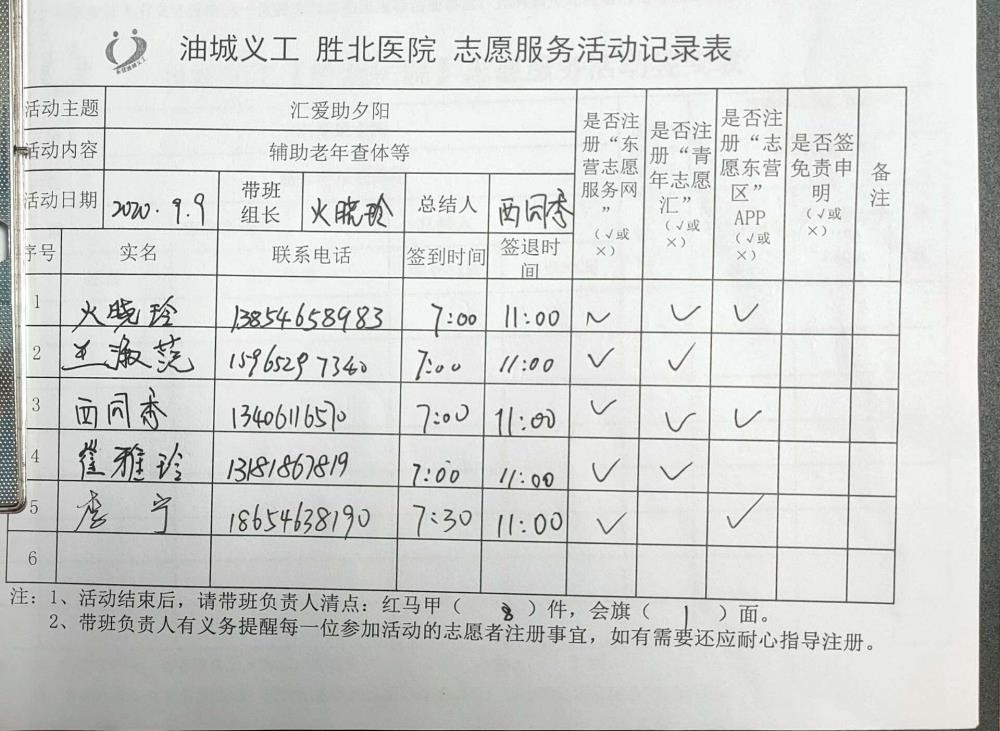 油城义工 胜北医院 志愿服务活动记录表
活动主题 汇爱助夕阳
活动内容 辅助老年查体等
活动日期 2020.9.9 带班组长 火晓玲 总结人 西同秀
序号 实名 联系电话 签到时间 签退时间 是否注册“东营志愿服务网”（√或×） 是否注册“青年志愿汇”（√或×） 是否注册“志愿东营区”APP（√或×） 是否签免责申明（√或×） 备注
1 火晓玲 13854658983 7:00 11:00 √ √ √
2 王淑范 15965297340 7:00 11:00 √ √
3 西同秀 13406116570 7:00 11:00 √ √ √
4 崔雅玲 13181867819 7:00 11:00 √ √
5 李宁 18654638190 7:30 11:00 √ √
6
注：1、活动结束后，请带班负责人清点：红马甲（ 8 ）件，会旗（ 1 ）面。
2、带班负责人有义务提醒每一位参加活动的志愿者注册事宜，如有需要还应耐心指导注册。